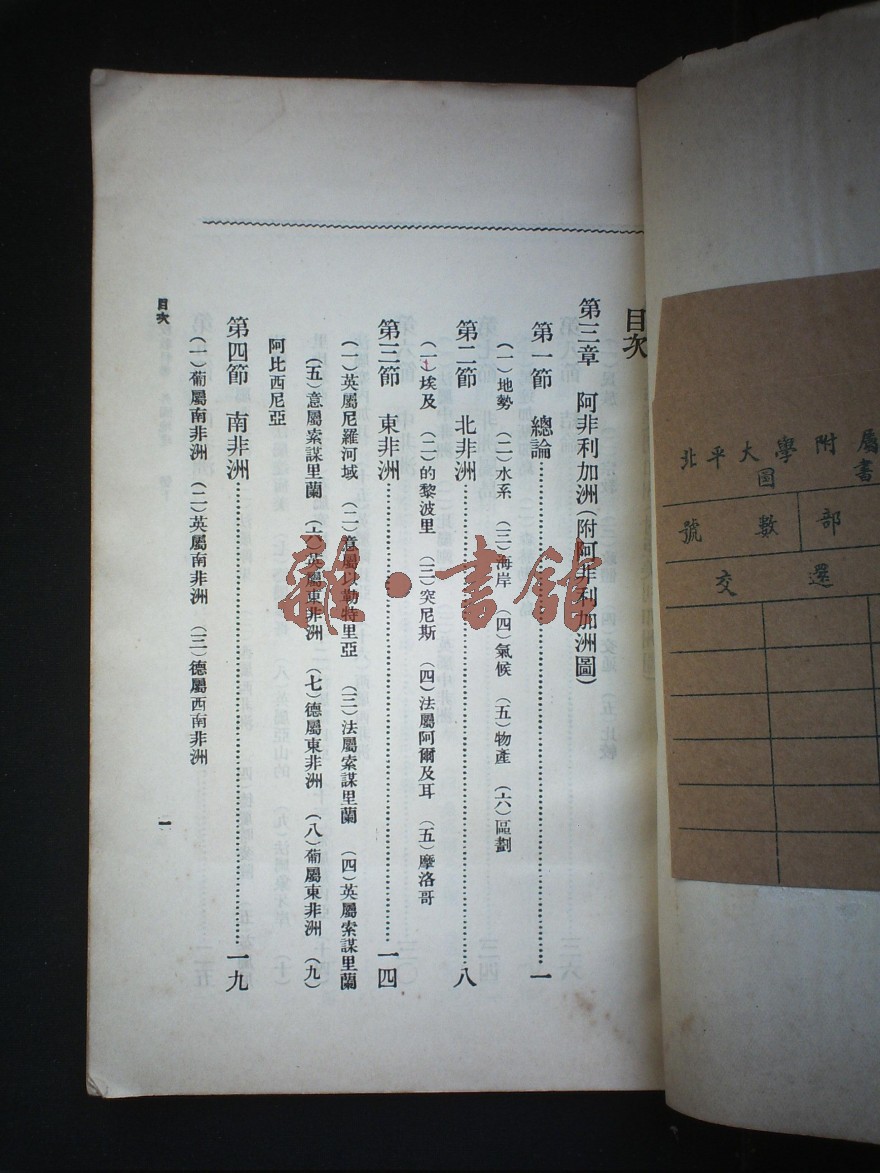 目次
第三章　阿非利加洲(附阿非利加洲圖)
第一節　總論………一
(一)地勢　(二)水系　(三)海岸　(四)氣候　(五)物產　(六)區劃
第二節　北非洲………八
(一)埃及　(二)的黎波里　(三)突尼斯　(四)法屬阿爾及耳　(五)摩洛哥
第三節　東非洲………一四
(一)英屬尼羅河域　(二)意屬以勒特里亞　(三)法屬索謀里蘭　(四)英屬索謀里蘭
(五)意屬索謀里蘭　(六)英屬東非洲　(七)德屬東非洲　(八)葡屬東非洲　(九)
阿比西尼亞
第四節　南非洲………一九
(一)葡屬南非洲　(二)英屬南非洲　(三)德屬西南非洲
目次
一
北平大學附屬
圖書
號數
部
交還
雜·書館